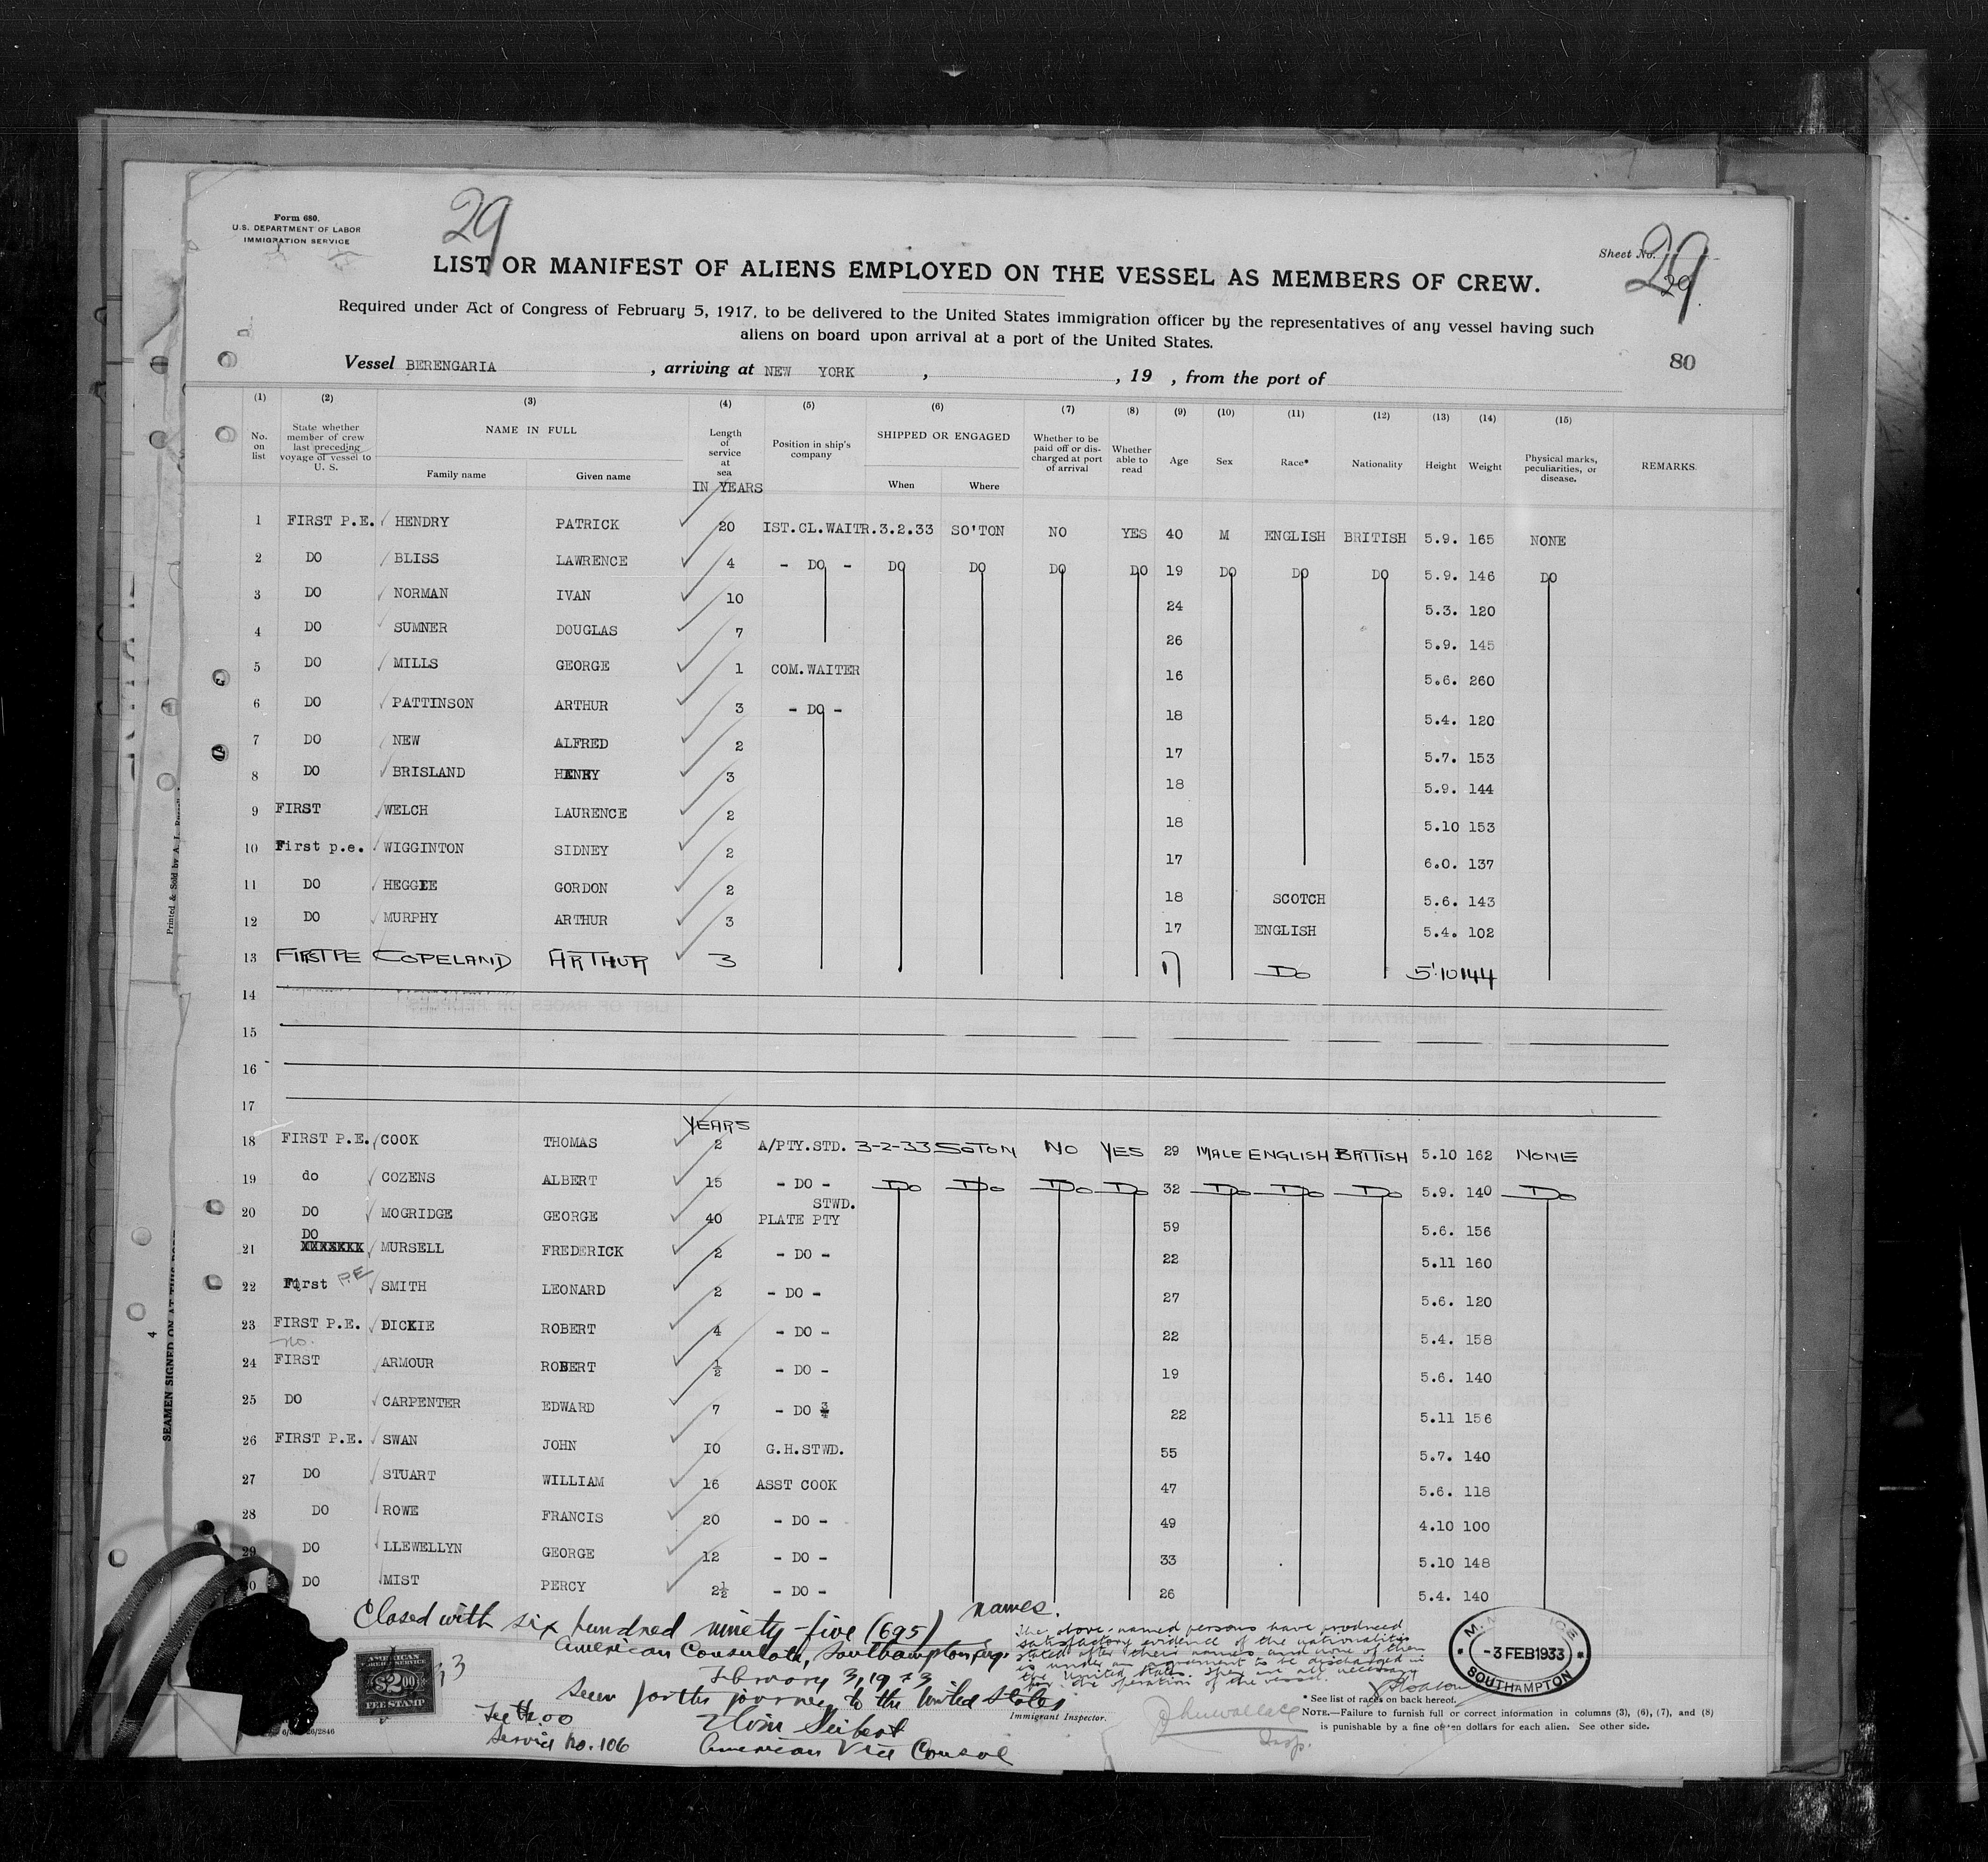 29
Form 680.
U.S. DEPARTMENT OF LABOR
IMMIGRATION SERVICE
Sheet No. 29
29
LIST OR MANIFEST OF ALIENS EMPLOYED ON THE VESSEL AS MEMBERS OF CREW.
Required under Act of Congress of February 5, 1917, to be delivered to the United States immigration officer by the representatives of any vessel having such
aliens on board upon arrival at a port of the United States.
80
Vessel BERENGARIA , arriving at NEW YORK , , 19 , from the port of
(1) (2) (3) (4) (5) (6) (7) (8) (9) (10) (11) (12) (13) (14) (15)
No. on list
State whether member of crew last preceding voyage of vessel to U. S.
NAME IN FULL
Family name Given name
Length of service at sea
IN YEARS
Position in ship's company
SHIPPED OR ENGAGED
When Where
Whether to be paid off or discharged at port of arrival
Whether able to read
Age Sex Race* Nationality Height Weight
Physical marks, peculiarities, or disease.
REMARKS.
1 FIRST P.E. HENDRY PATRICK 20 IST.CL.WAITR. 3.2.33 SO'TON NO YES 40 M ENGLISH BRITISH 5.9. 165 NONE
2 DO BLISS LAWRENCE 4 - DO - DO DO DO DO 19 DO DO DO 5.9. 146 DO
3 DO NORMAN IVAN 10 24 5.3. 120
4 DO SUMNER DOUGLAS 7 26 5.9. 145
5 DO MILLS GEORGE 1 COM.WAITER 16 5.6. 260
6 DO PATTINSON ARTHUR 3 - DO - 18 5.4. 120
7 DO NEW ALFRED 2 17 5.7. 153
8 DO BRISLAND HENRY 3 18 5.9. 144
9 FIRST WELCH LAURENCE 2 18 5.10 153
10 First p.e. WIGGINTON SIDNEY 2 17 6.0. 137
11 DO HEGGIE GORDON 2 18 SCOTCH 5.6. 143
12 DO MURPHY ARTHUR 3 17 ENGLISH 5.4. 102
13 FIRST PE COPELAND ARTHUR 3 17 DO 5'10 144
14
15
16
17
YEARS
18 FIRST P.E. COOK THOMAS 2 A/PTY.STD. 3-2-33 SOTON NO YES 29 MALE ENGLISH BRITISH 5.10 162 NONE
19 do COZENS ALBERT 15 - DO - DO DO DO DO 32 DO DO DO 5.9. 140 DO
20 DO MOGRIDGE GEORGE 40 PLATE PTY STWD. 59 5.6. 156
21 DO MURSELL FREDERICK 2 - DO - 22 5.11 160
22 First P.E SMITH LEONARD 2 - DO - 27 5.6. 120
23 FIRST P.E. DICKIE ROBERT 4 - DO - 22 5.4. 158
no.
24 FIRST ARMOUR ROBERT ½ - DO - 19 5.6. 140
25 DO CARPENTER EDWARD 7 - DO 22 5.11 156
26 FIRST P.E. SWAN JOHN 10 G.H.STWD. 55 5.7. 140
27 DO STUART WILLIAM 16 ASST COOK 47 5.6. 118
28 DO ROWE FRANCIS 20 - DO - 49 4.10 100
29 DO LLEWELLYN GEORGE 12 - DO - 33 5.10 148
30 DO MIST PERCY 2½ - DO - 26 5.4. 140
Closed with six hundred ninety-five (695) names.
American Consulate, Southampton, Eng.
February 3, 1933
Seen for the journey to the United States
Service No. 106
American Vice Consul
The above-named persons have produced
satisfactory evidence of the nationalities
stated after their names and none of them
is under an agreement to be discharged in
the United States. They are all necessary
for the operation of the vessel.
Immigrant Inspector.
Insp.
-3 FEB 1933
SOUTHAMPTON
AMERICAN
FOREIGN SERVICE
$2.00
FEE STAMP
* See list of races on back hereof.
NOTE.—Failure to furnish full or correct information in columns (3), (6), (7), and (8)
is punishable by a fine of ten dollars for each alien. See other side.
Printed & Sold by A. L.
SEAMEN SIGNED ON AT THIS PORT
4